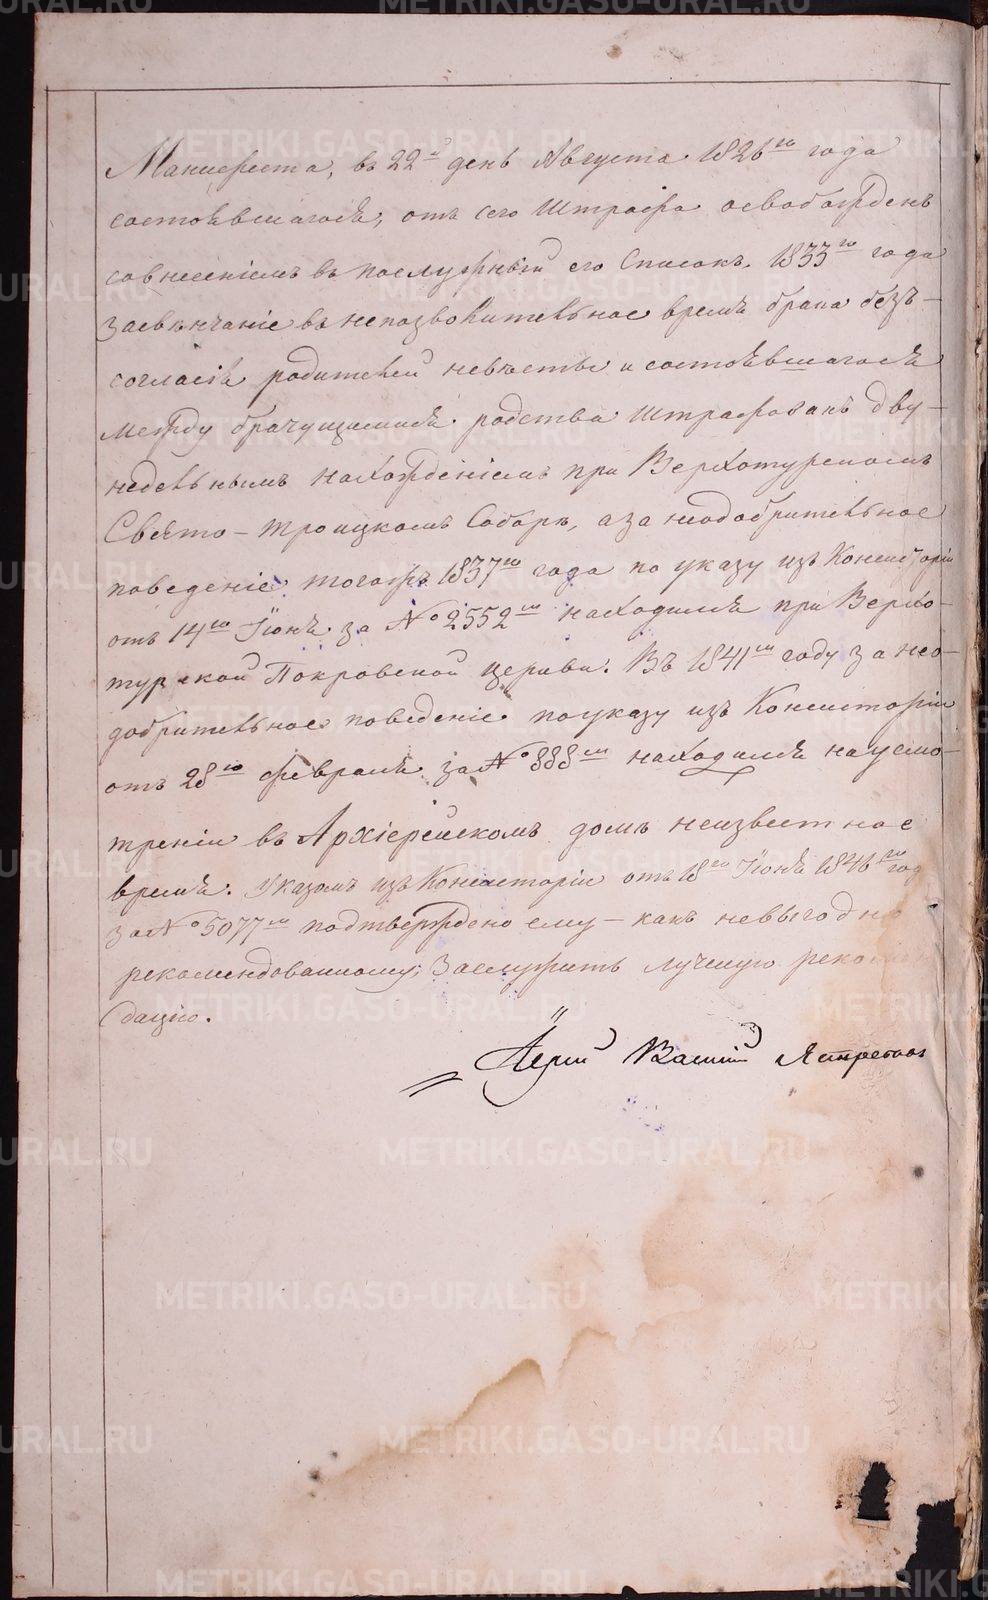 Манифеста, въ 22й день Августа 1826го года
состоявшагося, отъ сего Штрафа освобожденъ
совнесеніемъ въ послужный его Списокъ. 1833го года
заевѣнчаніе въ непозволительное время брака безъ-
согласія родителей невѣсты и состоявшагося
между брачущимися родства штрафованъ дву-
недельнымъ нахожденіемъ при Верхотурскомъ
Свято-Троицкомъ Соборѣ, а за неодобрительное
поведеніе тогожъ 1837го года по указу изъ Консисторіи
отъ 14го Іюня за № 2552мъ находился при Верхо-
турской Покровской церкви. Въ 1841мъ году за нео-
добрительное поведеніе по указу изъ Консисторіи
отъ 28го февраля за № 888мъ находился на усмо-
треніи въ Архіерейскомъ домѣ неизвестное
время. Указомъ изъ Консисторіи отъ 18го Іюня 1846го год
за № 5077мъ подтверждено ему - какъ невыгодно
рекомендованному, Заслужить лучшую рекомен
дацію.
Іерей Василій Ястребовъ
METRIKI.GASO-URAL.RU